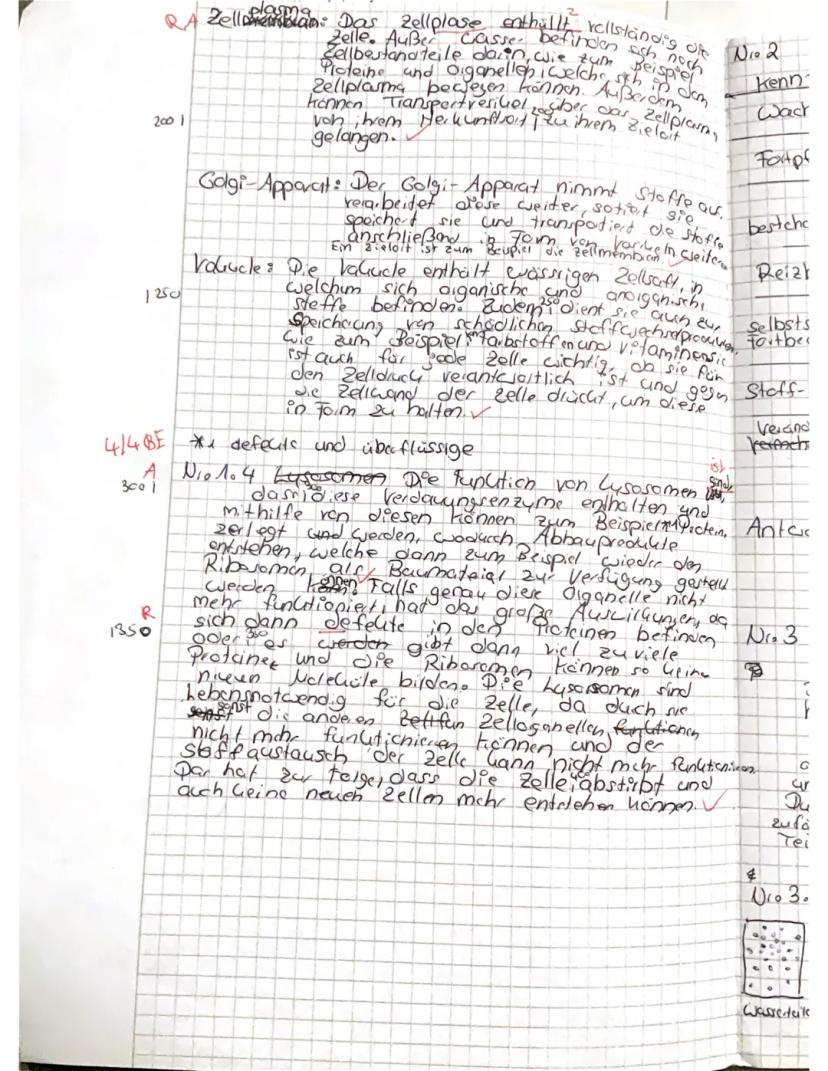 R A Zellplasma: Das Zellplase enthüllt² vollständig die
Zelle. Außer Wasser befinden sich noch
Zellbestandteile darin, wie zum Beispiel
Proteine und Organellen, welche sich in dem
Zellplasma bewegen können. Außerdem
können Transportvesikel 200 über das Zellplasma
200 | von ihrem Herkunftsort | zu ihrem Zielort
gelangen. ✓
Golgi-Apparat: Der Golgi-Apparat nimmt Stoffe auf,
verarbeitet diese weiter, sotiert sie
speichert sie und transportiert die Stoffe
anschließend in Form von Vesikeln weiter.
Ein Zielort ist zum Beispiel die Zellmembran. ✓
Vakuole: Die Vakuole enthält wässrigen Zellsaft, in
welchem sich organische und anorganische
1 250 Stoffe befinden. Zudem 250 dient sie auch zur
Speicherung von schädlichen Stoffwechselprodukten,
wie zum Beispiel Farbstoffen und Vitaminen. Sie
ist auch für jede Zelle wichtig, da sie für
den Zelldruck verantwortlich ist und gegen
die Zellwand der Zelle drückt, um diese
in Form zu halten. ✓
4/4 BE *1 defekte und überflüssige
A Nr. 1.4 Lysosomen Die Funktion von Lysosomen ist sind
300 | das 300 diese Verdauungsenzyme enthalten und
mithilfe von diesen können zum Beispiel *1 Proteine
zerlegt und werden, wodurch Abbauprodukte
entstehen, welche dann zum Beispiel wieder den
Ribosomen als ✓ Baumaterial zur Verfügung gestellt
werden können. Falls genau diese Organelle nicht
mehr funktioniert, hat das große Auswirkungen, da
R sich dann defekte in den Proteinen befinden
1350 oder 350 es werden gibt dann viel zu viele
Proteine und die Ribosomen können so keine
neuen Moleküle bilden. Die Lysosomen sind
Lebensnotwendig für die Zelle, da durch sie
sonst sonst die anderen Zellfun Zelloganellen funktionen
nicht mehr funktionieren können und der
Stoffaustausch der Zelle kann nicht mehr funktionieren.
Das hat zur Folge, dass die Zelle 400 abstirbt und
auch keine neuen Zellen mehr entstehen können. ✓
Nr. 2
Kenn
Wach
Fortpf
bestehe
Reizb
selbsts
Fortbe
Stoff-
Verand
Antwo
Nr. 3
zufä
Tei
Nr. 3.
Wasserteilc